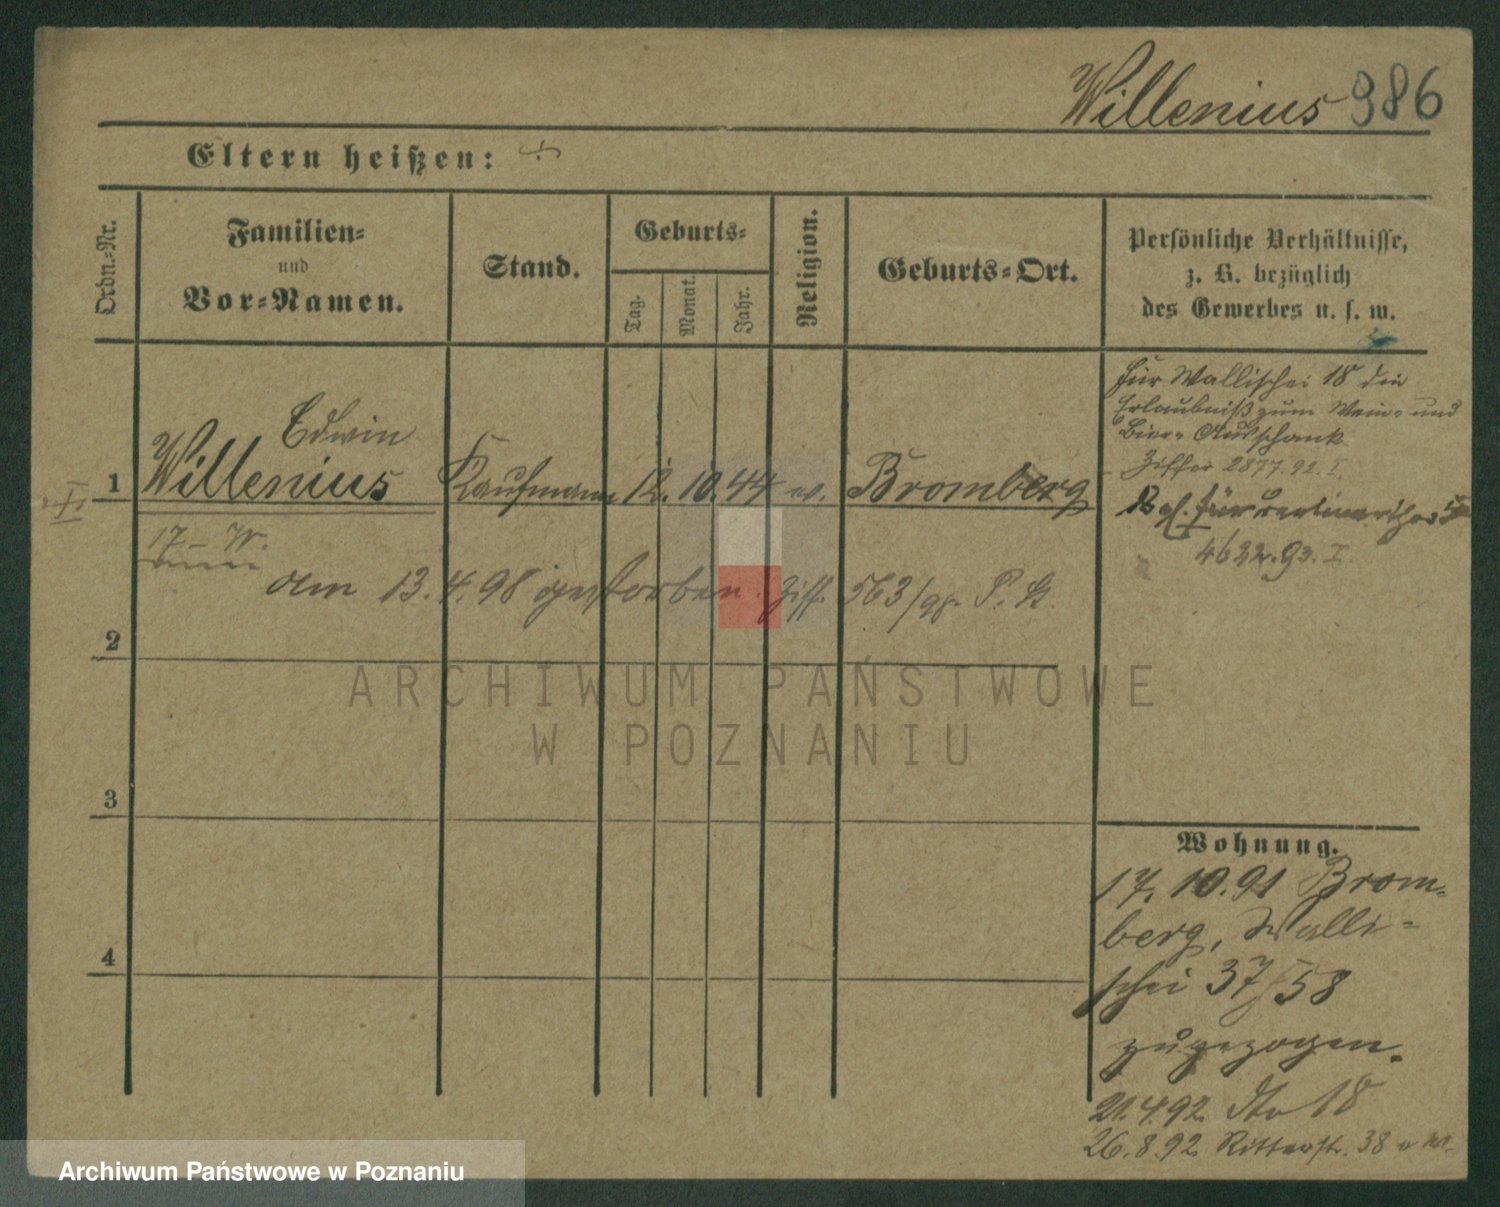 Willenius 986
Eltern heißen: ÷
Ordn.-Nr.
Familien-
und
Vor-Namen.
Stand.
Geburts-
Tag.
Monat.
Jahr.
Religion.
Geburts-Ort.
Persönliche Verhältnisse,
z. B. bezüglich
des Gewerbes u. s. w.
Edwin
1 Willenius Kaufmann 12. 10. 44 ev. Bromberg
17
am 13. 4. 98 gestorben. Ziff. 563/98 P. B.
2
3
4
für Wallischei 18 die
Erlaubniß zum Wein- und
Bier- Ausschank
Ziffer 2877. 92. I.
für
4622. 93. I.
Wohnung.
17. 10. 91 Brom-
berg, Walli-
schei 37/38
zugezogen.
21. 4. 92. dto 18
26. 8. 92. Ritterstr. 38
ARCHIWUM PAŃSTWOWE
W POZNANIU
Archiwum Państwowe w Poznaniu